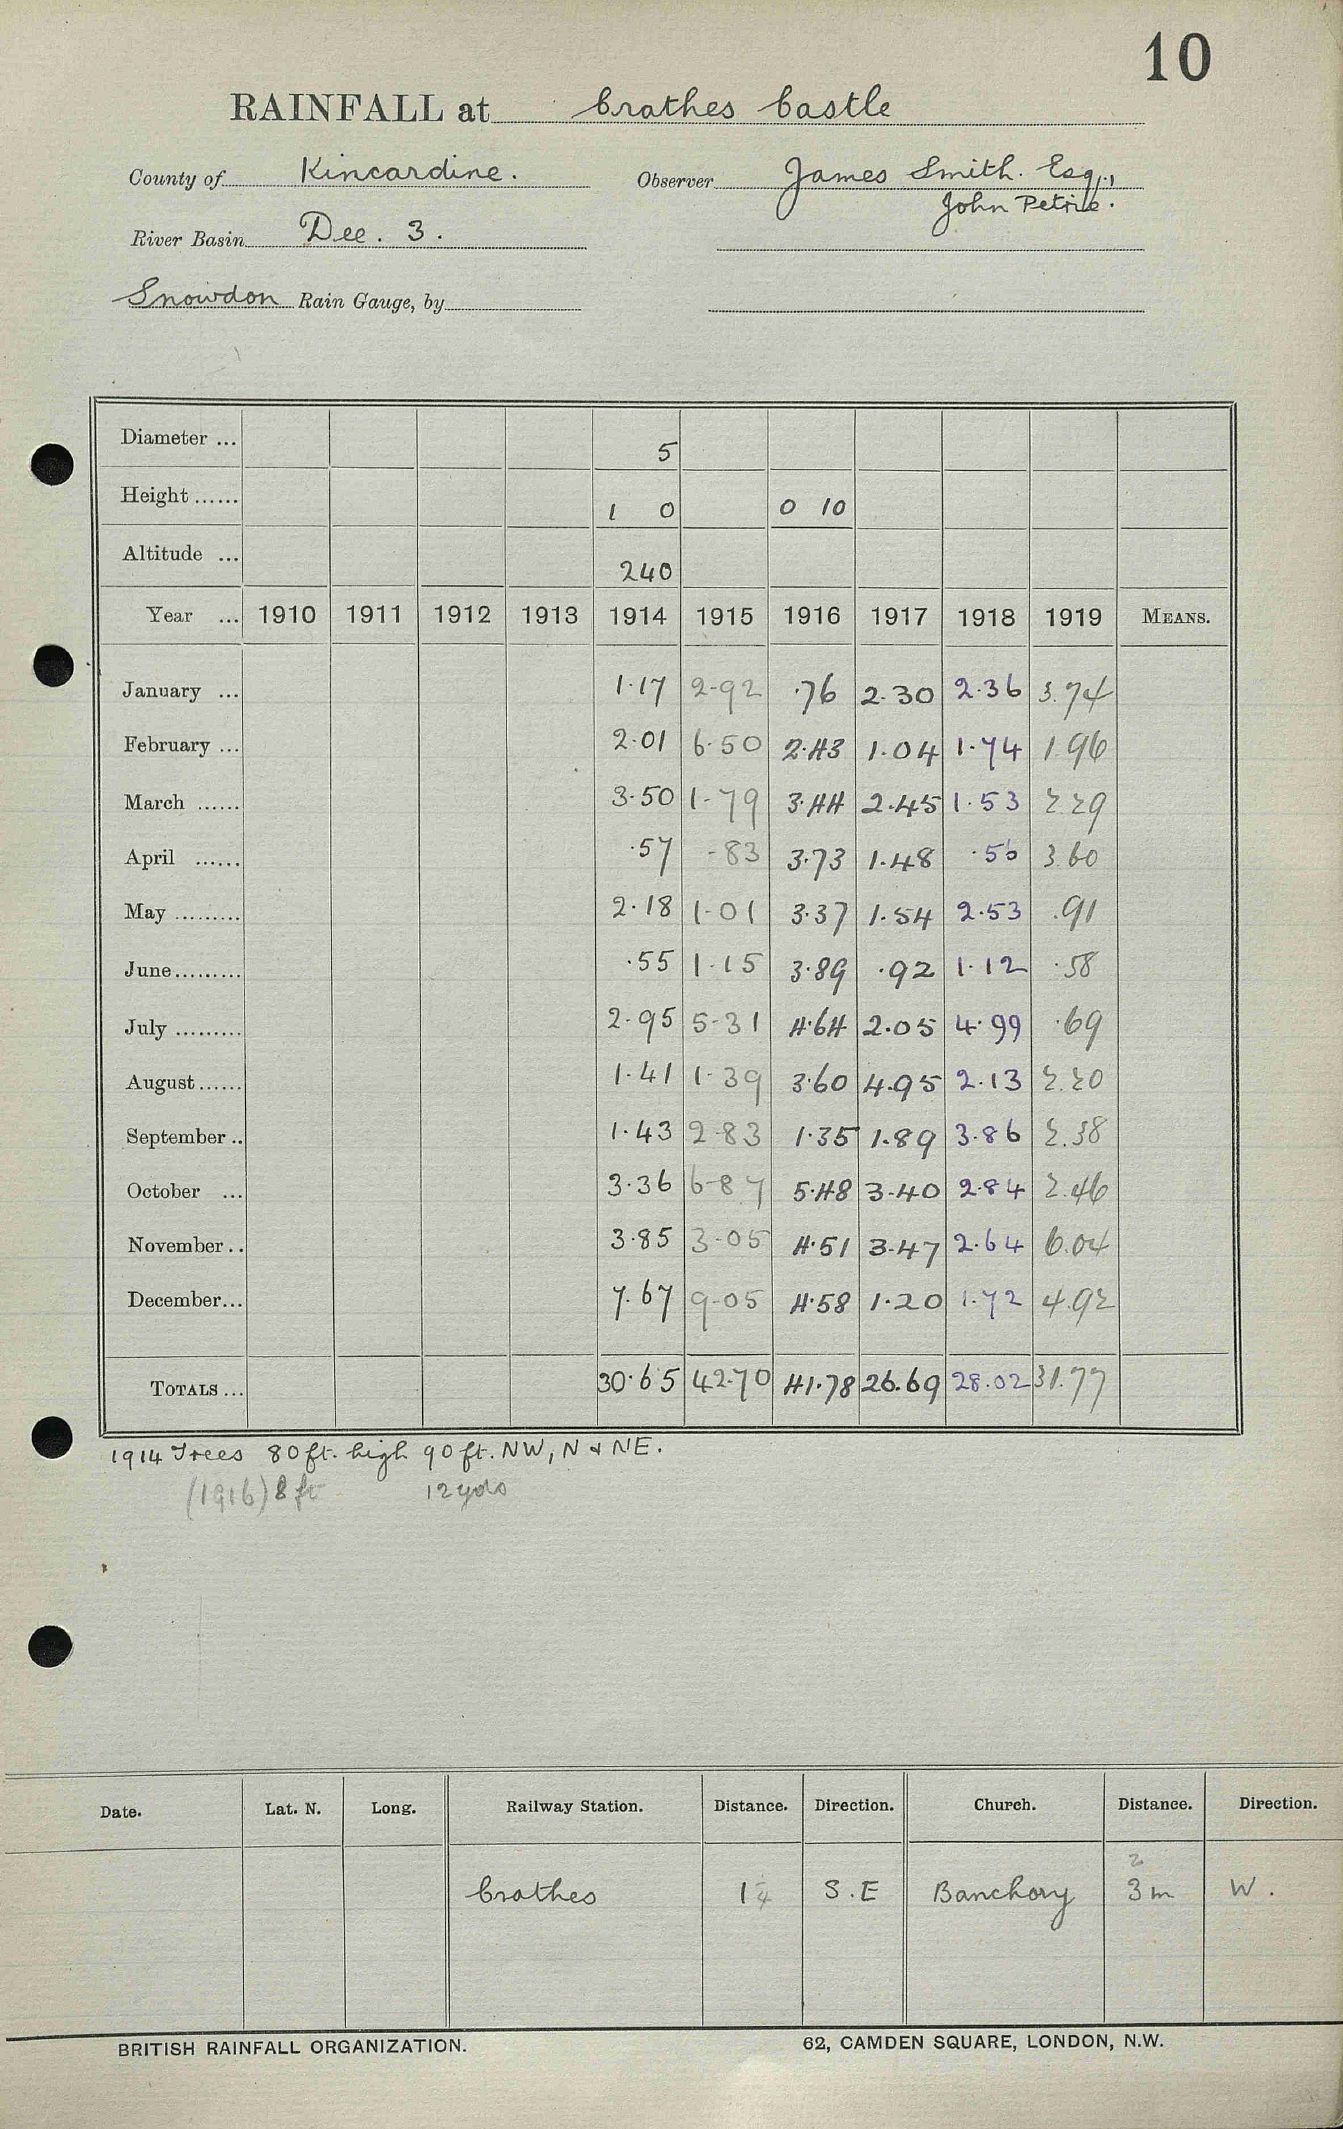 10
RAINFALL at Crathes Castle
County of Kincardine. Observer James Smith. Esq.,
John Petrie.
River Basin Dee. 3.
Snowdon Rain Gauge, by
Diameter ... 5
Height ...... 1 0 0 10
Altitude ... 240
Year ... 1910 1911 1912 1913 1914 1915 1916 1917 1918 1919 MEANS.
January ... 1.17 2-92 .76 2.30 2.36 3.74
February ... 2.01 6.50 2.43 1.04 1.74 1.96
March ...... 3.50 1-79 3.44 2.45 1.53 2.29
April ...... .57 -83 3.73 1.48 .56 3.60
May ......... 2.18 1-01 3.37 1.54 2.53 .91
June......... .55 1.15 3.89 .92 1.12 .58
July ......... 2.95 5-31 4.64 2.05 4.99 .69
August...... 1.41 1-39 3.60 4.95 2.13 2.20
September .. 1.43 2-83 1.35 1.89 3.86 2.38
October ... 3.36 6-87 5.48 3.40 2.84 2.46
November.. 3.85 3-05 4.51 3.47 2.64 6.04
December... 7.67 9-05 4.58 1.20 1.72 4.92
TOTALS ... 30.65 42.70 41.78 26.69 28.02 31.77
1914 Trees 80ft. high 90ft. NW, N & NE.
(1916) 8 ft 12 yds
Date. Lat. N. Long. Railway Station. Distance. Direction. Church. Distance. Direction.
2
Crathes 1 1/4 S.E Banchory 3m W.
BRITISH RAINFALL ORGANIZATION. 62, CAMDEN SQUARE, LONDON, N.W.